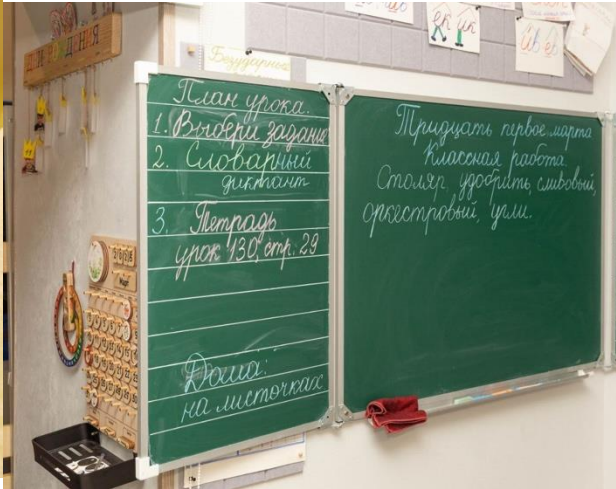 ДНИ РОЖДЕНИЯ
Безударные
План урока.
1. Выбери задание
2. Словарный
диктант
3. Тетрадь
урок 130, стр. 29
Дома:
на листочках
Тридцать первое марта
Классная работа.
Столяр, удобрить, сливовый,
оркестровый, угли.